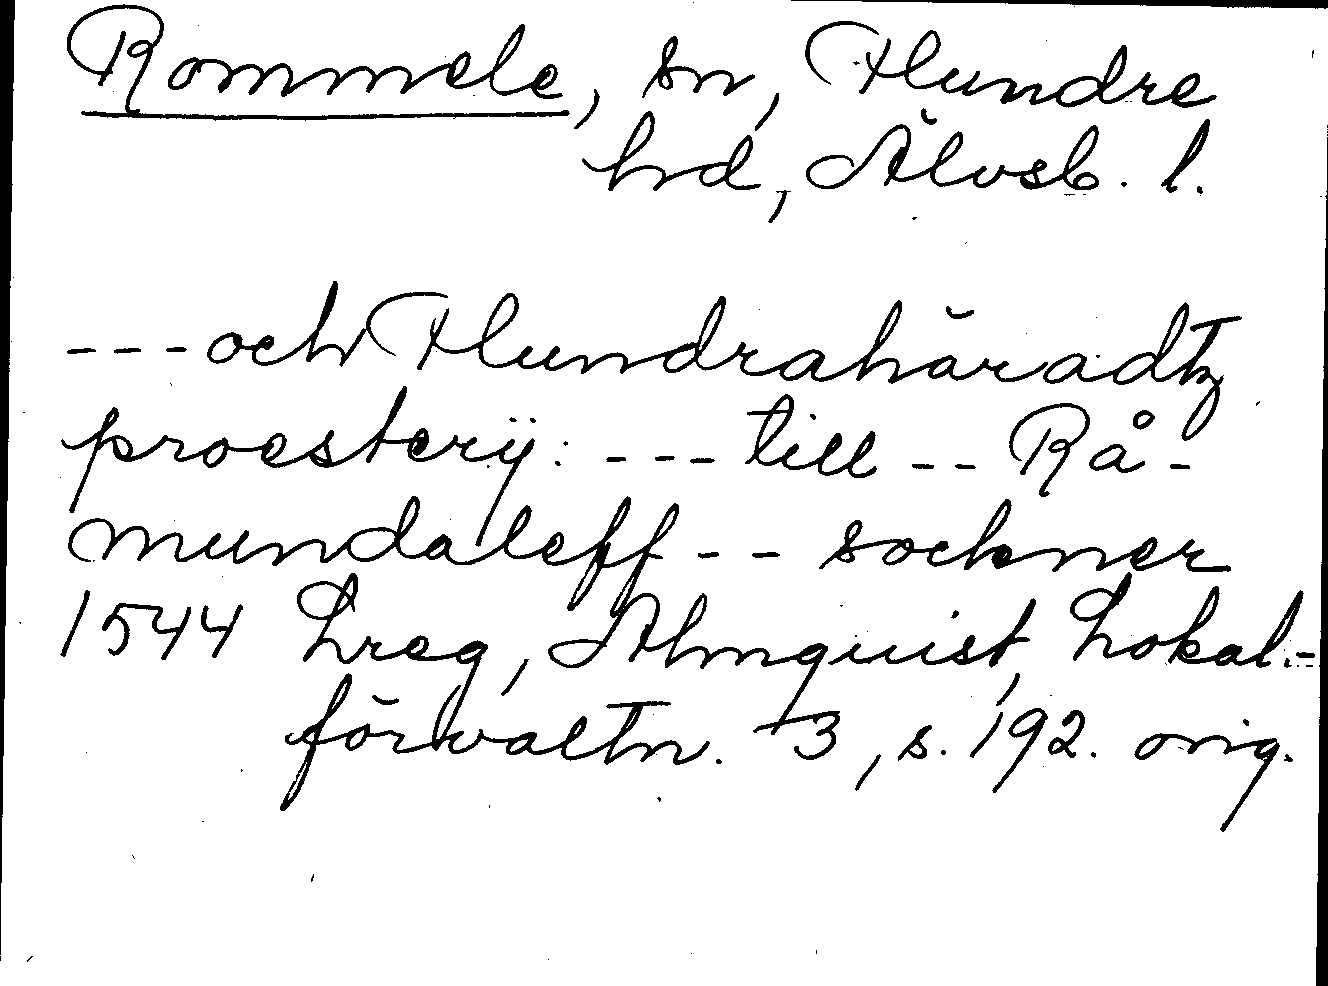 Rommele, sn, Flundre
hd, Älvsb. l.
--- och Flundrahäradtz
proesterij: --- till -- Rå-
mundaleff -- sockner
1544 Lreg, Almquist, Lokal-
förvaltn. 3, s. 192. orig.